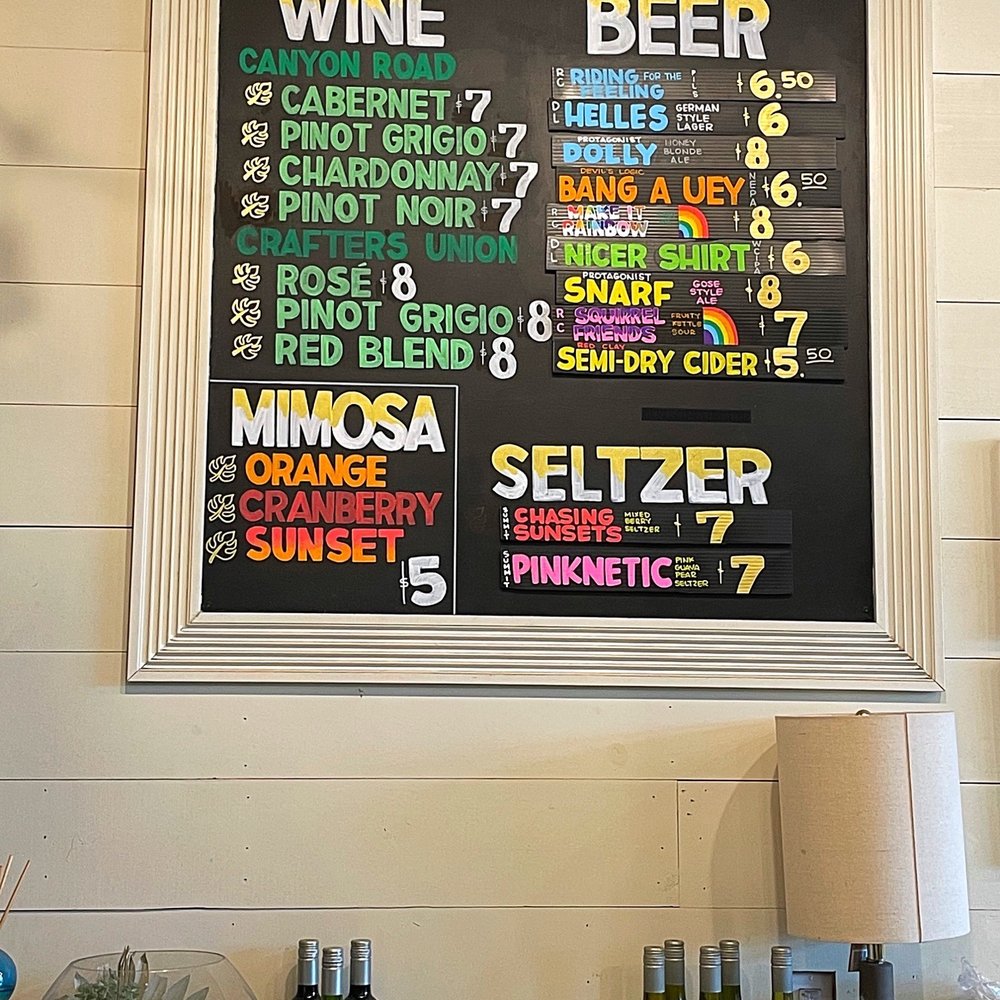 WINE
CANYON ROAD
CABERNET $7
PINOT GRIGIO $7
CHARDONNAY $7
PINOT NOIR $7
CRAFTERS UNION
ROSÉ $8
PINOT GRIGIO $8
RED BLEND $8
MIMOSA
ORANGE
CRANBERRY
SUNSET
$5
BEER
RC RIDING FOR THE FEELING PILS $6.50
DL HELLES GERMAN STYLE LAGER $6
PROTAGONIST
DOLLY HONEY BLONDE ALE $8
DEVIL'S LOGIC
BANG A UEY NEPA $6.50
RC MAKE IT RAINBOW $8
DL NICER SHIRT WCIPA $6
PROTAGONIST
SNARF GOSE STYLE ALE $8
RC SQUIRREL FRIENDS FRUITY KETTLE SOUR $7
RED CLAY
SEMI-DRY CIDER $5.50
SELTZER
SUMMIT CHASING SUNSETS MIXED BERRY SELTZER $7
SUMMIT PINKNETIC PINK GUAVA PEAR SELTZER $7